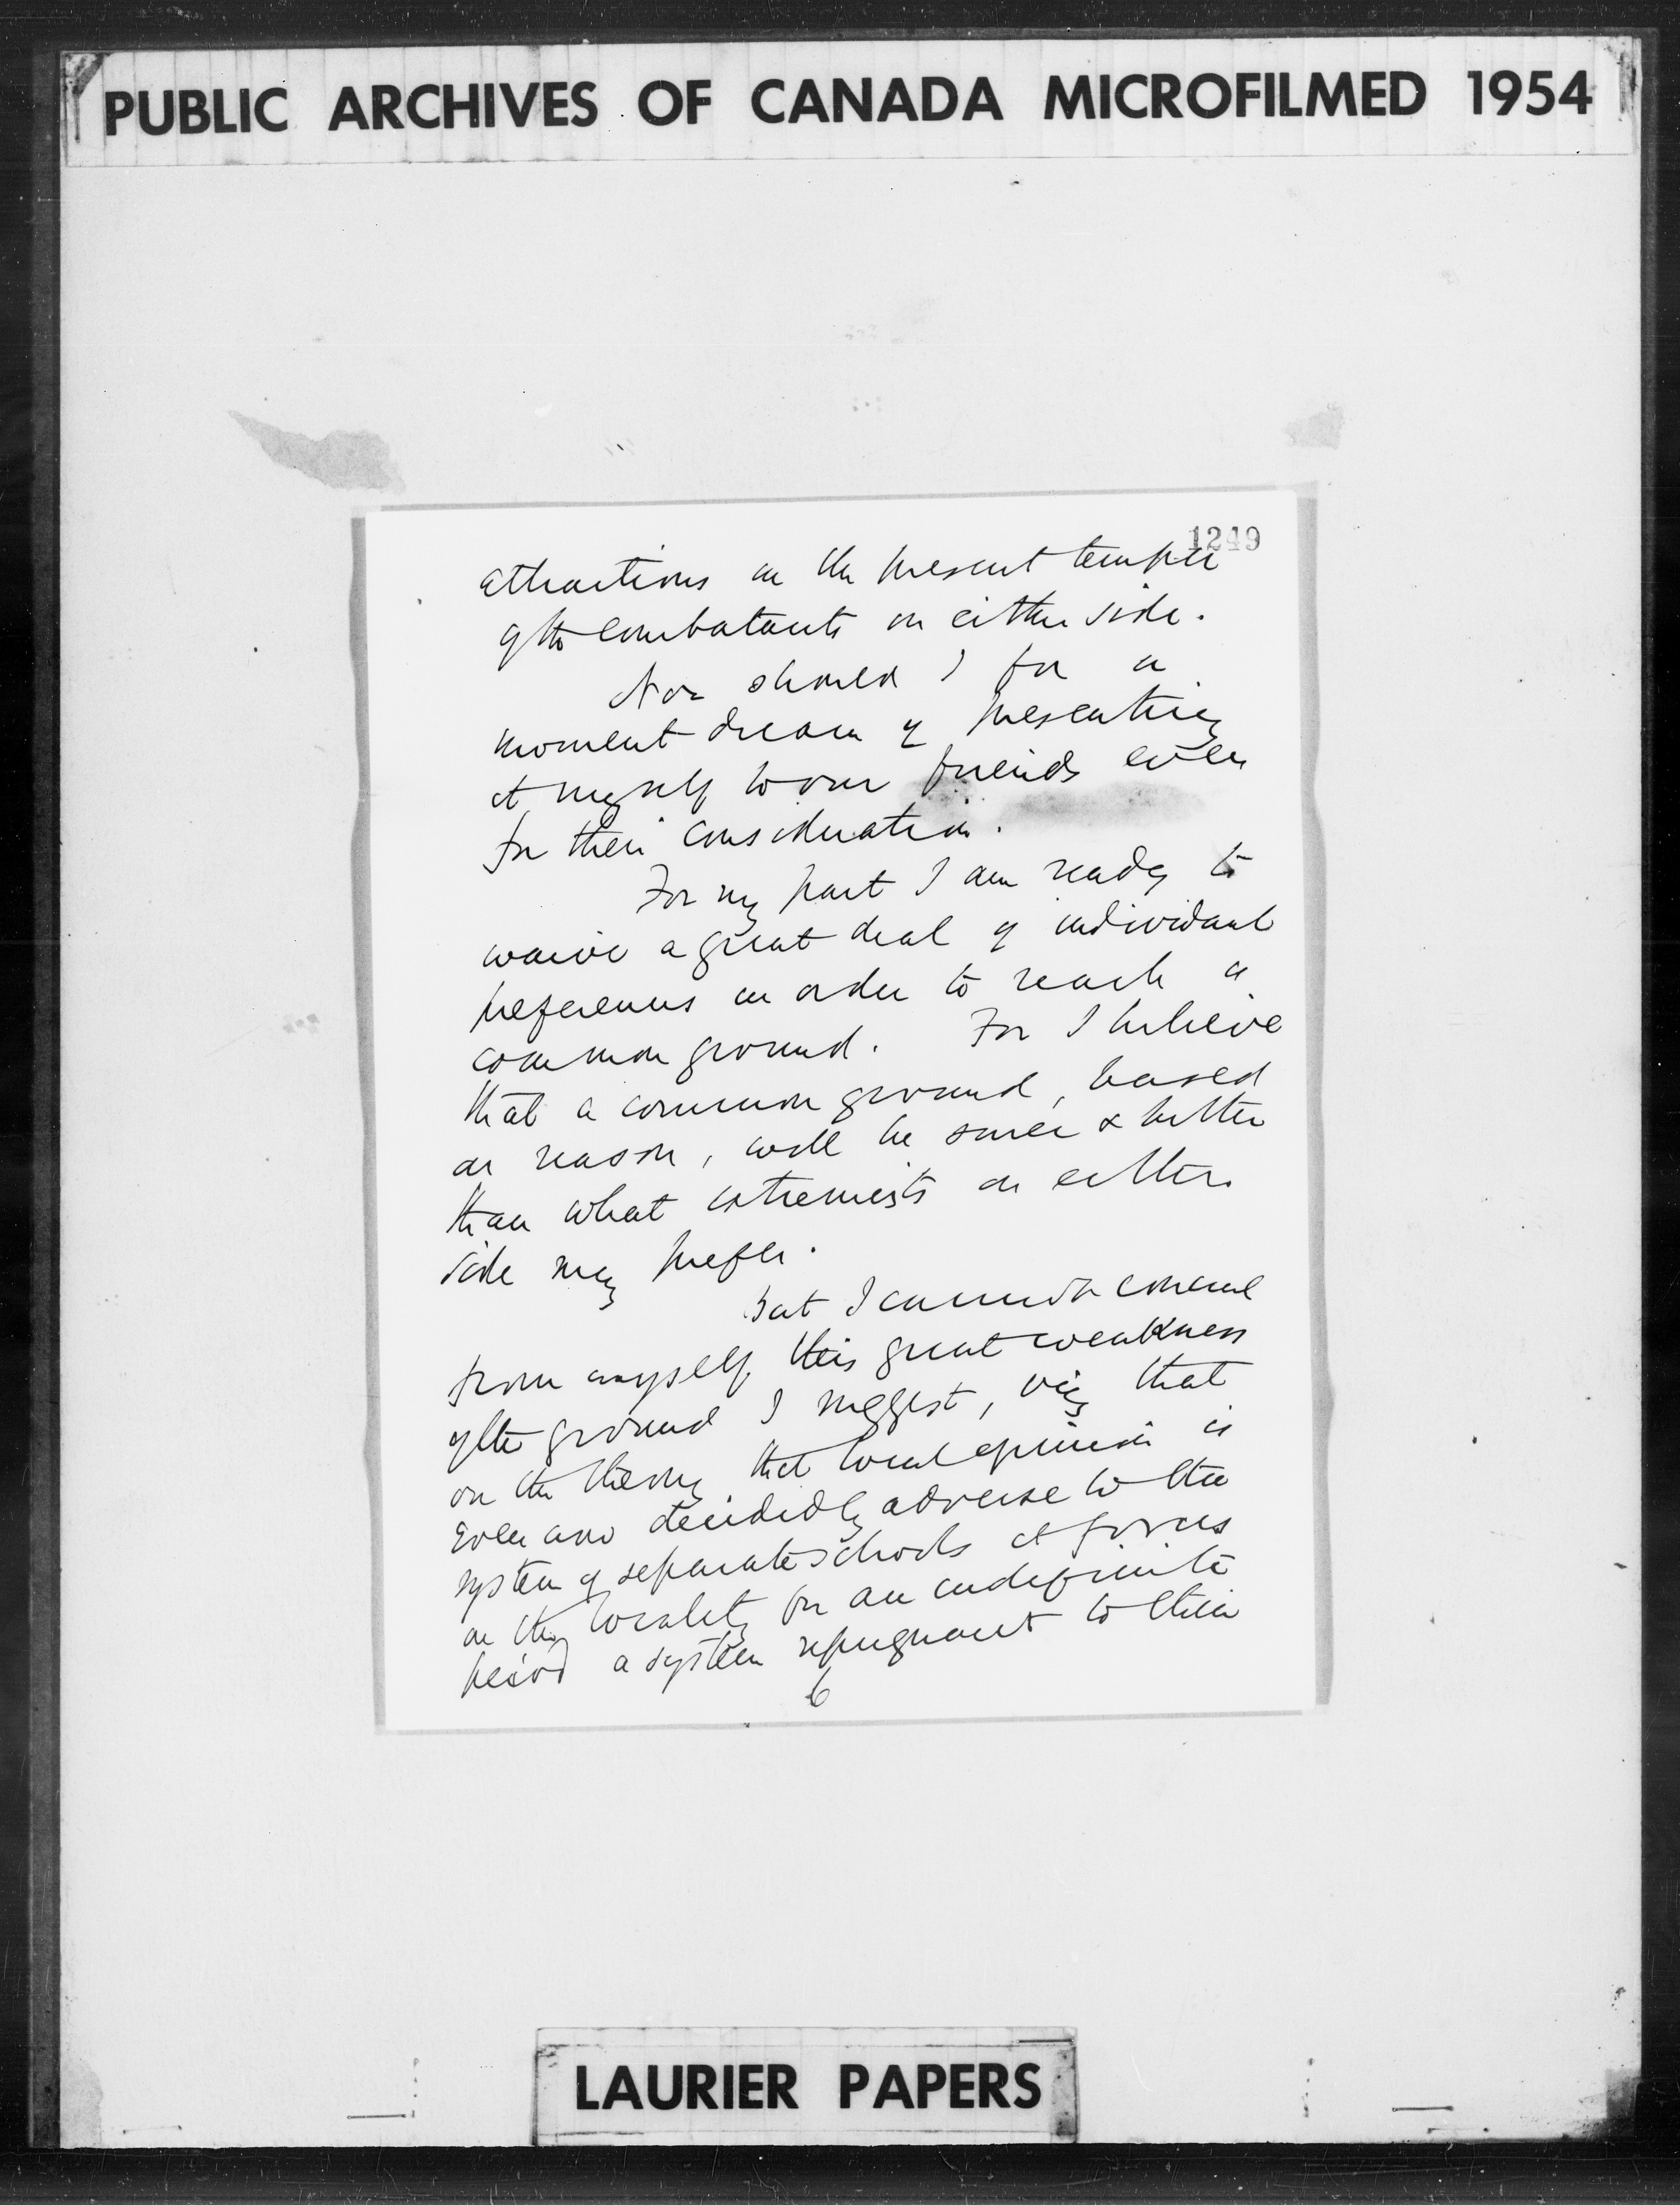 PUBLIC ARCHIVES OF CANADA MICROFILMED 1954
1249
attractions in the present temper
of the combatants on either side.
Nor should I for a
moment dream of presenting
it myself to our friends even
for their consideration.
For my part I am ready to
waive a great deal of individual
preferences in order to reach a
common ground. For I believe
that a common ground, based
on reason, will be surer & better
than what extremists on either
side may prefer.
But I cannot conceal
from myself this great weakness
of the ground I suggest, viz that
on the theory that local opinion is
even now decidedly adverse to the
system of separate schools it forces
on the locality for an indefinite
period a system repugnant to their
6
LAURIER PAPERS